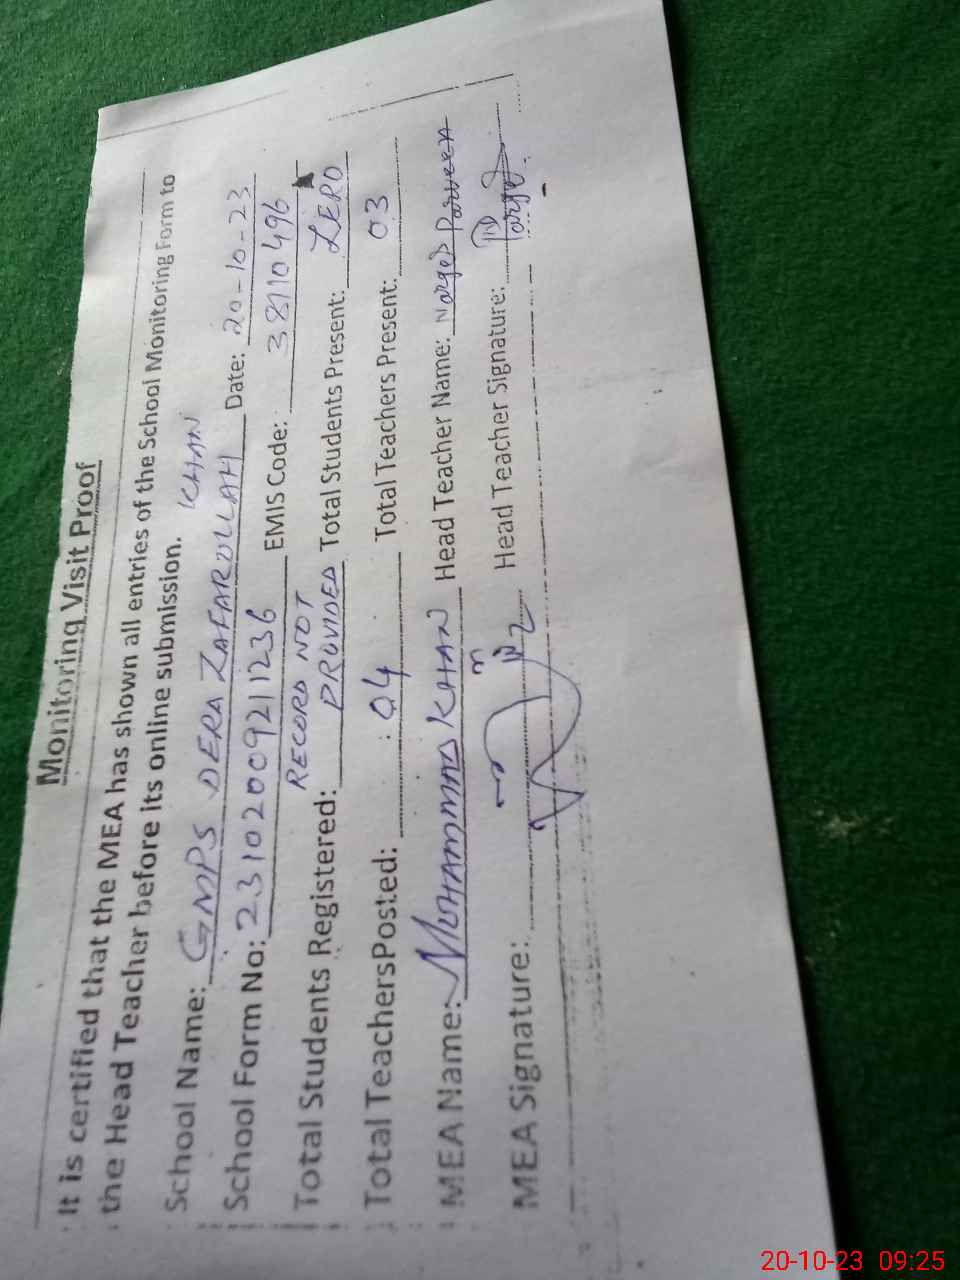 Monitoring Visit Proof
It is certified that the MEA has shown all entries of the School Monitoring Form to
the Head Teacher before its online submission.
KHAN
School Name: GMPS DERA ZAFARULLAH Date: 20-10-23
School Form No: 23102009211236 EMIS Code: 38110496
RECORD NOT
Total Students Registered: PROVIDED Total Students Present: ZERO
Total TeachersPosted: 04 Total Teachers Present: 03
MEA Name: MUHAMMAD KHAN Head Teacher Name: Narges Parveen
MEA Signature: Head Teacher Signature:
20-10-23 09:25